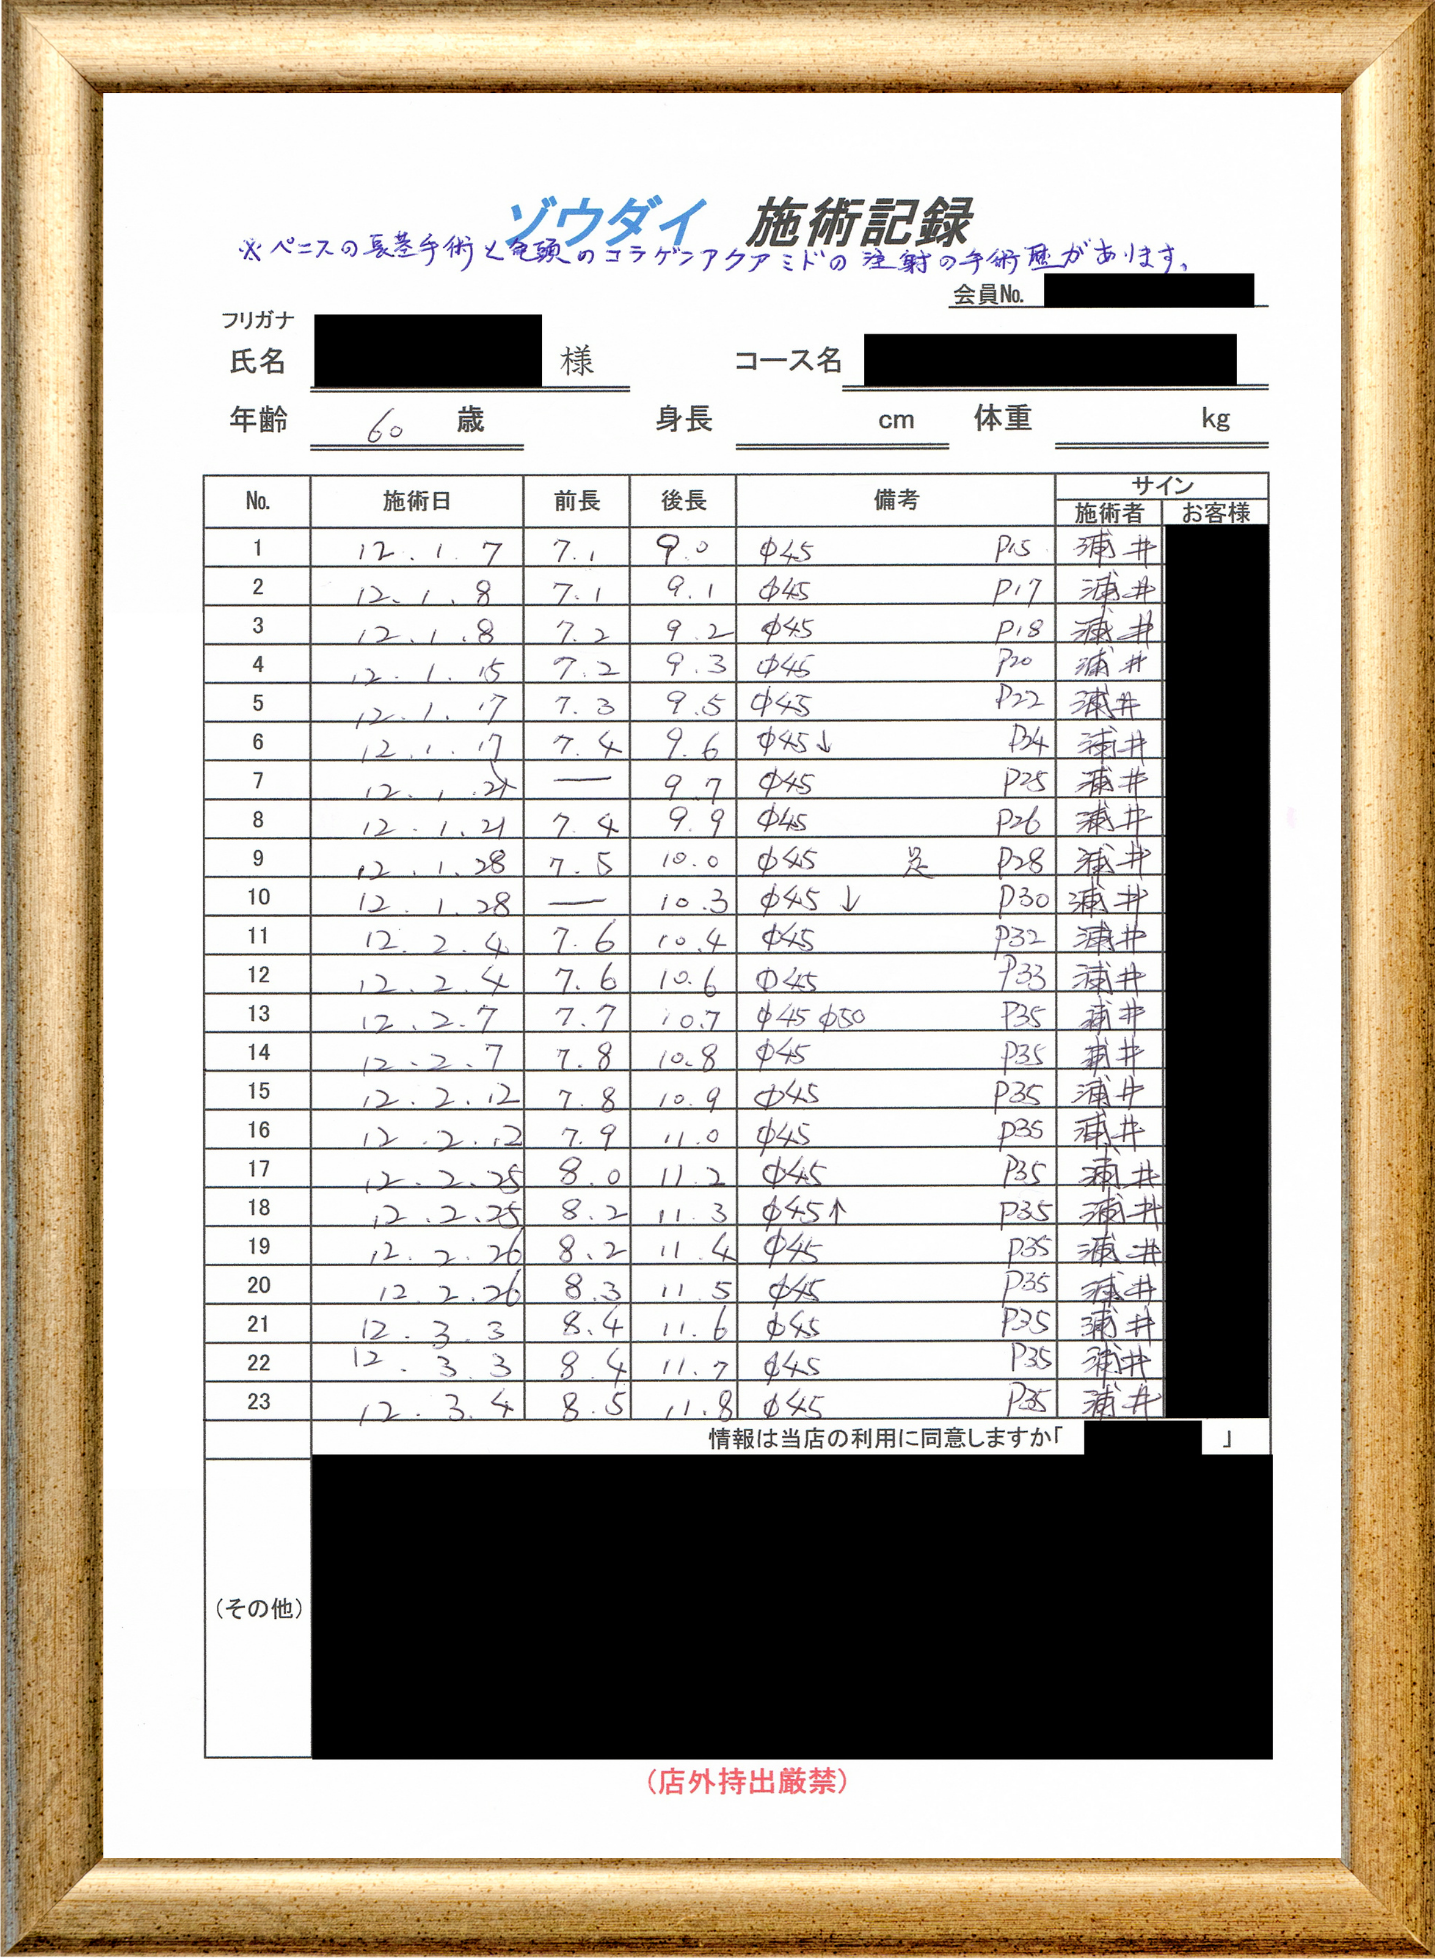 ゾウダイ 施術記録
※ペニスの長茎手術と亀頭のコラゲンアクアミドの注射の手術歴があります。
会員No.
フリガナ
氏名 様 コース名
年齢 60 歳 身長 cm 体重 kg
No. 施術日 前長 後長 備考 サイン
施術者 お客様
1 12.1.7 7.1 9.0 φ45 P15 浦井
2 12.1.8 7.1 9.1 φ45 P17 浦井
3 12.1.8 7.2 9.2 φ45 P18 浦井
4 12.1.15 7.2 9.3 φ45 P20 浦井
5 12.1.17 7.3 9.5 φ45 P22 浦井
6 12.1.17 7.4 9.6 φ45↓ P34 浦井
7 12.1.21 — 9.7 φ45 P25 浦井
8 12.1.21 7.4 9.9 φ45 P26 浦井
9 12.1.28 7.5 10.0 φ45 足 P28 浦井
10 12.1.28 — 10.3 φ45 ↓ P30 浦井
11 12.2.4 7.6 10.4 φ45 P32 浦井
12 12.2.4 7.6 10.6 φ45 P33 浦井
13 12.2.7 7.7 10.7 φ45 φ50 P35 浦井
14 12.2.7 7.8 10.8 φ45 P35 浦井
15 12.2.12 7.8 10.9 φ45 P35 浦井
16 12.2.12 7.9 11.0 φ45 P35 浦井
17 12.2.25 8.0 11.2 φ45 P35 浦井
18 12.2.25 8.2 11.3 φ45↑ P35 浦井
19 12.2.26 8.2 11.4 φ45 P35 浦井
20 12.2.26 8.3 11.5 φ45 P35 浦井
21 12.3.3 8.4 11.6 φ45 P35 浦井
22 12.3.3 8.4 11.7 φ45 P35 浦井
23 12.3.4 8.5 11.8 φ45 P35 浦井
情報は当店の利用に同意しますか「 」
(その他)
(店外持出厳禁)